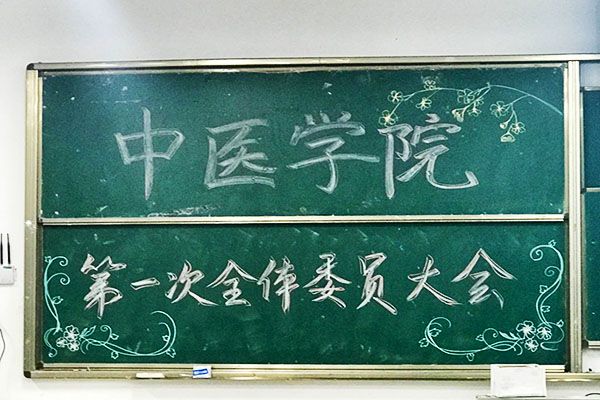 中医学院
第一次全体委员大会